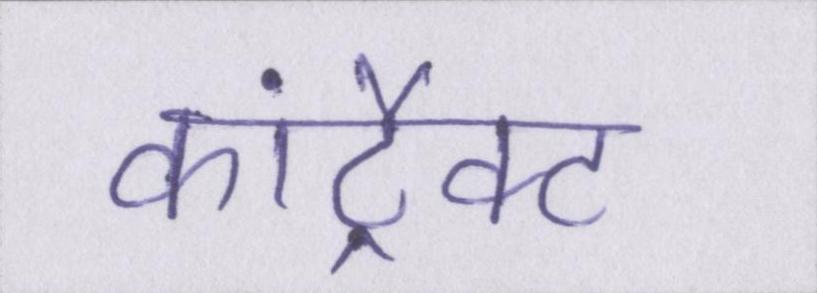 कांट्रैक्ट